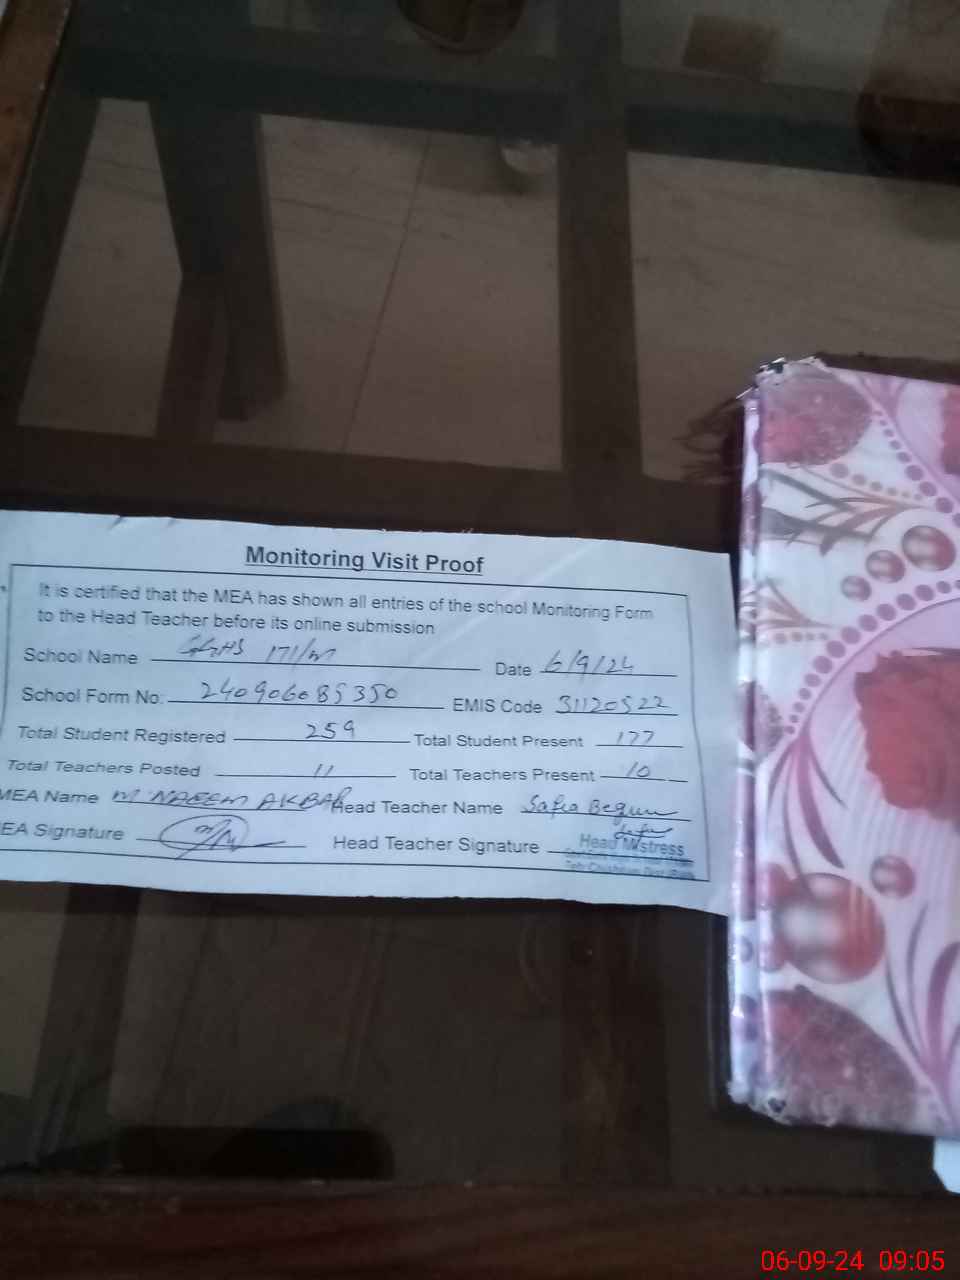 Monitoring Visit Proof
It is certified that the MEA has shown all entries of the school Monitoring Form
to the Head Teacher before its online submission
School Name GGHS 171/M Date 6/9/24
School Form No: 240906085350 EMIS Code 31120522
Total Student Registered 259 Total Student Present 177
Total Teachers Posted 11 Total Teachers Present 10
MEA Name M NAEEM AKBAR Head Teacher Name Safia Begum
EA Signature Head Teacher Signature
Head Mistress
06-09-24 09:05